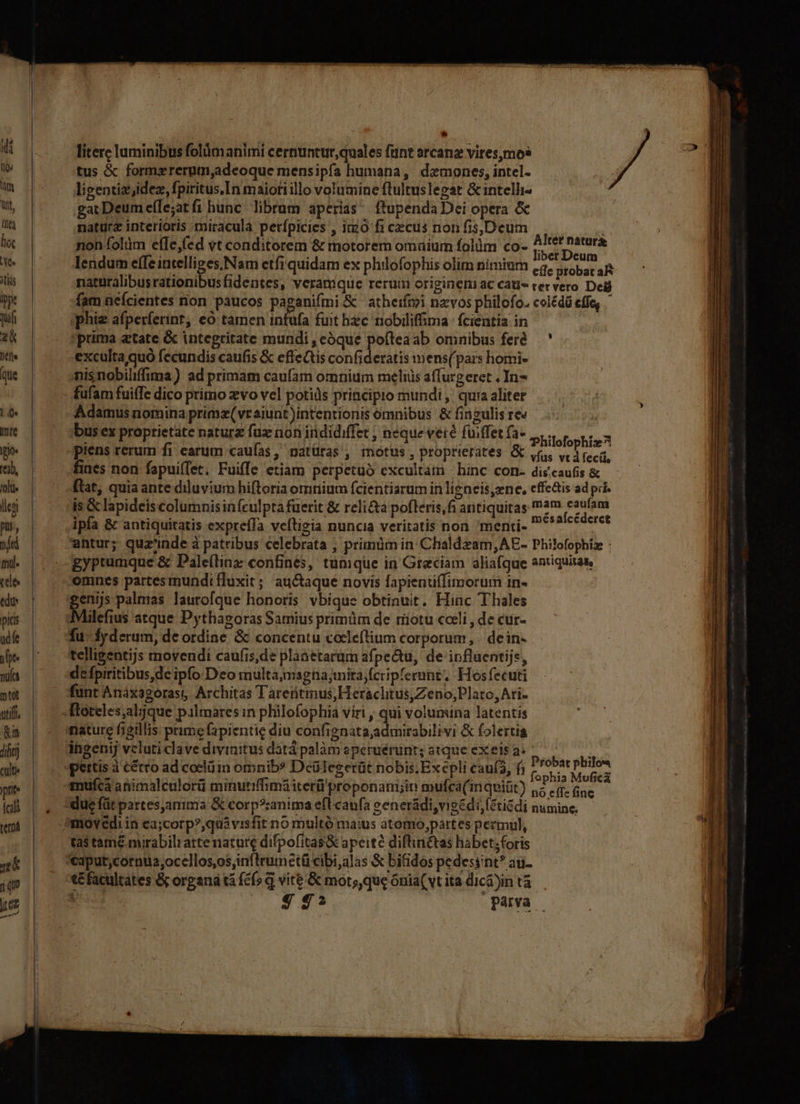 litere luminibus solùm animi cernuntur, quales sunt arcanæ vires, mo-
tus & formæ rerum, adeoque mens ipsa humana, dæmones, intel-
ligentiæ, ideæ, spiritus. In maiori illo volumine stultus legat & intelli-
gat Deum esse; at si hunc librum aperias stupenda Dei opera &
naturæ interioris miracula perspicies, imò si cæcus non sis, Deum
non solùm esse, sed vt conditorem & motorem omnium solùm co-
lendum esse intelliges. Nam etsi quidam ex philosophis olim nimium
naturalibus rationibus fidentes, veramque rerum originem ac cau-
sam nescientes non paucos paganismi & atheismi nævos philoso-
phiæ asperserint, eò tamen infusa fuit hæc nobilissima scientia in
prima ætate & integritate mundi, eòque postea ab omnibus ferè
exculta, quò secundis causis & effectis consideratis mens (pars homi-
nis nobilissima) ad primam causam omnium meliùs assurgeret. In-
fusam fuisse dico primo ævo vel potiùs principio mundi, quia aliter
Adamus nomina primæ (vt aiunt) intentionis omnibus & singulis re-
bus ex proprietate naturæ suæ non indidisset, neque verè fuisset sa-
piens rerum si earum causas, naturas, motus, proprietates &
fines non sapuisset. Fuisse etiam perpetuò excultam hinc con-
stat, quia ante diluvium historia omnium scientiarum in ligneis, æne-
is & lapideis columnis insculpta fuerit & relicta posteris, si antiquitas
ipsa & antiquitatis expressa vestigia nuncia veritatis non menti-
antur; quæ inde à patribus celebrata, primùm in Chaldæam, AE-
gyptumque & Palestinæ confines, tùmque in Græciam aliasque
omnes partes mundi fluxit; auctaque novis sapientissimorum in-
genijs palmas laurosque honoris vbique obtinuit. Hinc Thales
Milesius atque Pythagoras Samius primùm de motu cœli, de cur-
su syderum, de ordine & concentu cœlestium corporum, dein-
telligentijs movendi causis, de planetarum aspectu, de influentijs,
de spiritibus, de ipso Deo multa, magna, mira, scripserunt. Hos secuti
sunt Anaxagoras, Architas Tarentinus, Heraclitus, Zeno, Plato, Ari-
stoteles, alijque palmares in philosophia viri, qui volumina latentis
nature sigillis prime sapientie diu consignata, admirabili vi & solertia
ingenij veluti clave divinitus datâ palàm aperuerunt; atque ex eis a-
pertis à cẽtro ad cœlũ in omnib⁹ Deũ legerũt nobis. Exẽpli causâ, si
muscã animalculorũ minutissimã iterũ proponam; in musca (inquiũt)
due sũt partes, anima & corp⁹: anima est causa generãdi, vigẽdi, sẽtiẽdi
movẽdi in ea; corp⁹, quãvis sit nõ multò maius atomo, partes permul,
tas tamẽ mirabili arte nature dispositas & aperte distinctas habet; foris
caput, cornua, ocellos, os, instrumẽtũ cibi, alas & bifidos pedes; int⁹ au-
tẽ facultates & organa tã sẽs⁹ q̃ vite & mot⁹, que õnia (vt ita dicã) in tã
¶¶ 2 parva
Alter naturæ
liber Deum
esse probat at-
ter vero Deũ
colẽdũ esse,
Philosophiæ
vsus vt à secũ-
dis causis &
effectis ad pri-
mam causam
mẽs ascẽderet
Philosophiæ
antiquitas,
Probat philo-
sophia Muscã
nõ esse sine
numine.